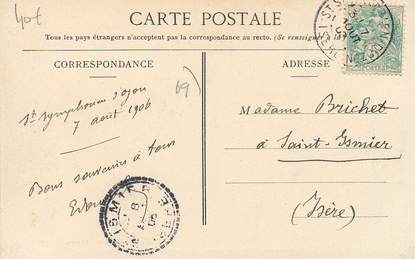 40f
CARTE POSTALE
Tous les pays étrangers n'acceptent pas la correspondance au recto. (Se renseigner
CORRESPONDANCE
ADRESSE
69)
St Symphorien d'Ozon
7 août 1906
Bons souvenirs à tous
Madame Brichet
à Saint-Ismier
(Isère)
ISMIER
8